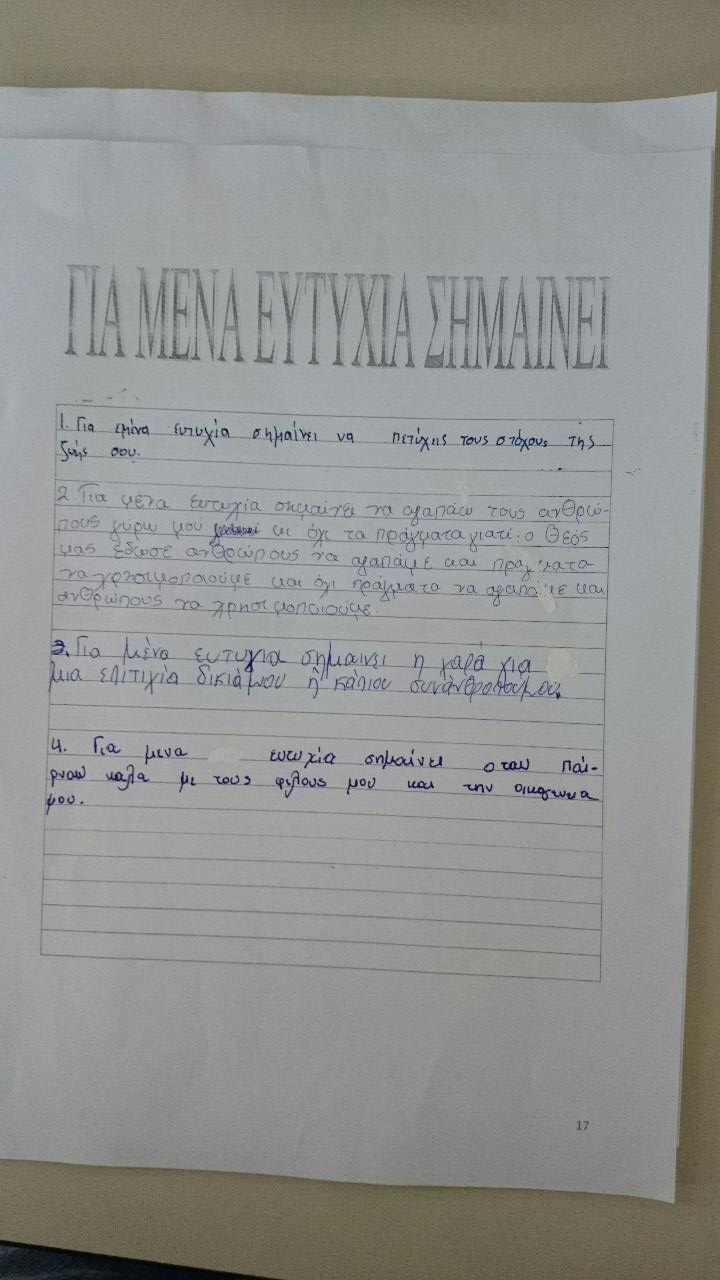 ΓΙΑ ΜΕΝΑ ΕΥΤΥΧΙΑ ΣΗΜΑΙΝΕΙ
1. Για εμένα ευτυχία σημαίνει να πετύχεις τους στόχους της
ζωής σου.
2. Για μένα ευτυχία σημαίνει να αγαπάω τους ανθρώ-
πους γύρω μου κι όχι τα πράγματα γιατί ο Θεός
μας έδωσε ανθρώπους να αγαπάμε και πράγματα
να χρησιμοποιούμε και όχι πράγματα να αγαπάμε και
ανθρώπους να χρησιμοποιούμε
3. Για μένα ευτυχια σημαινει η χαρά για
μια επιτιχία δικιά μου ή κάπιου συνάνθροπόμου.
4. Για μενα ευτυχία σημαίνει οταν παί-
ρναω καλα με τους φιλους μου και την οικογενια
μου.
17